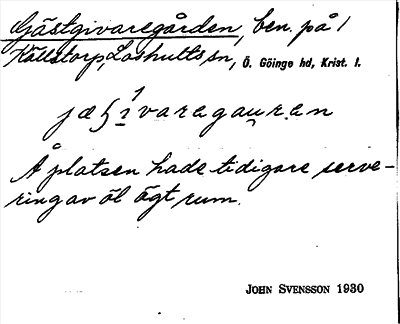 Gästgivaregården, ben. på 1
Källstorp, Loshults sn, Ö. Göinge hd, Krist. l.
Å platsen hade tidigare serve-
ring av öl ägt rum.
JOHN SVENSSON 1930